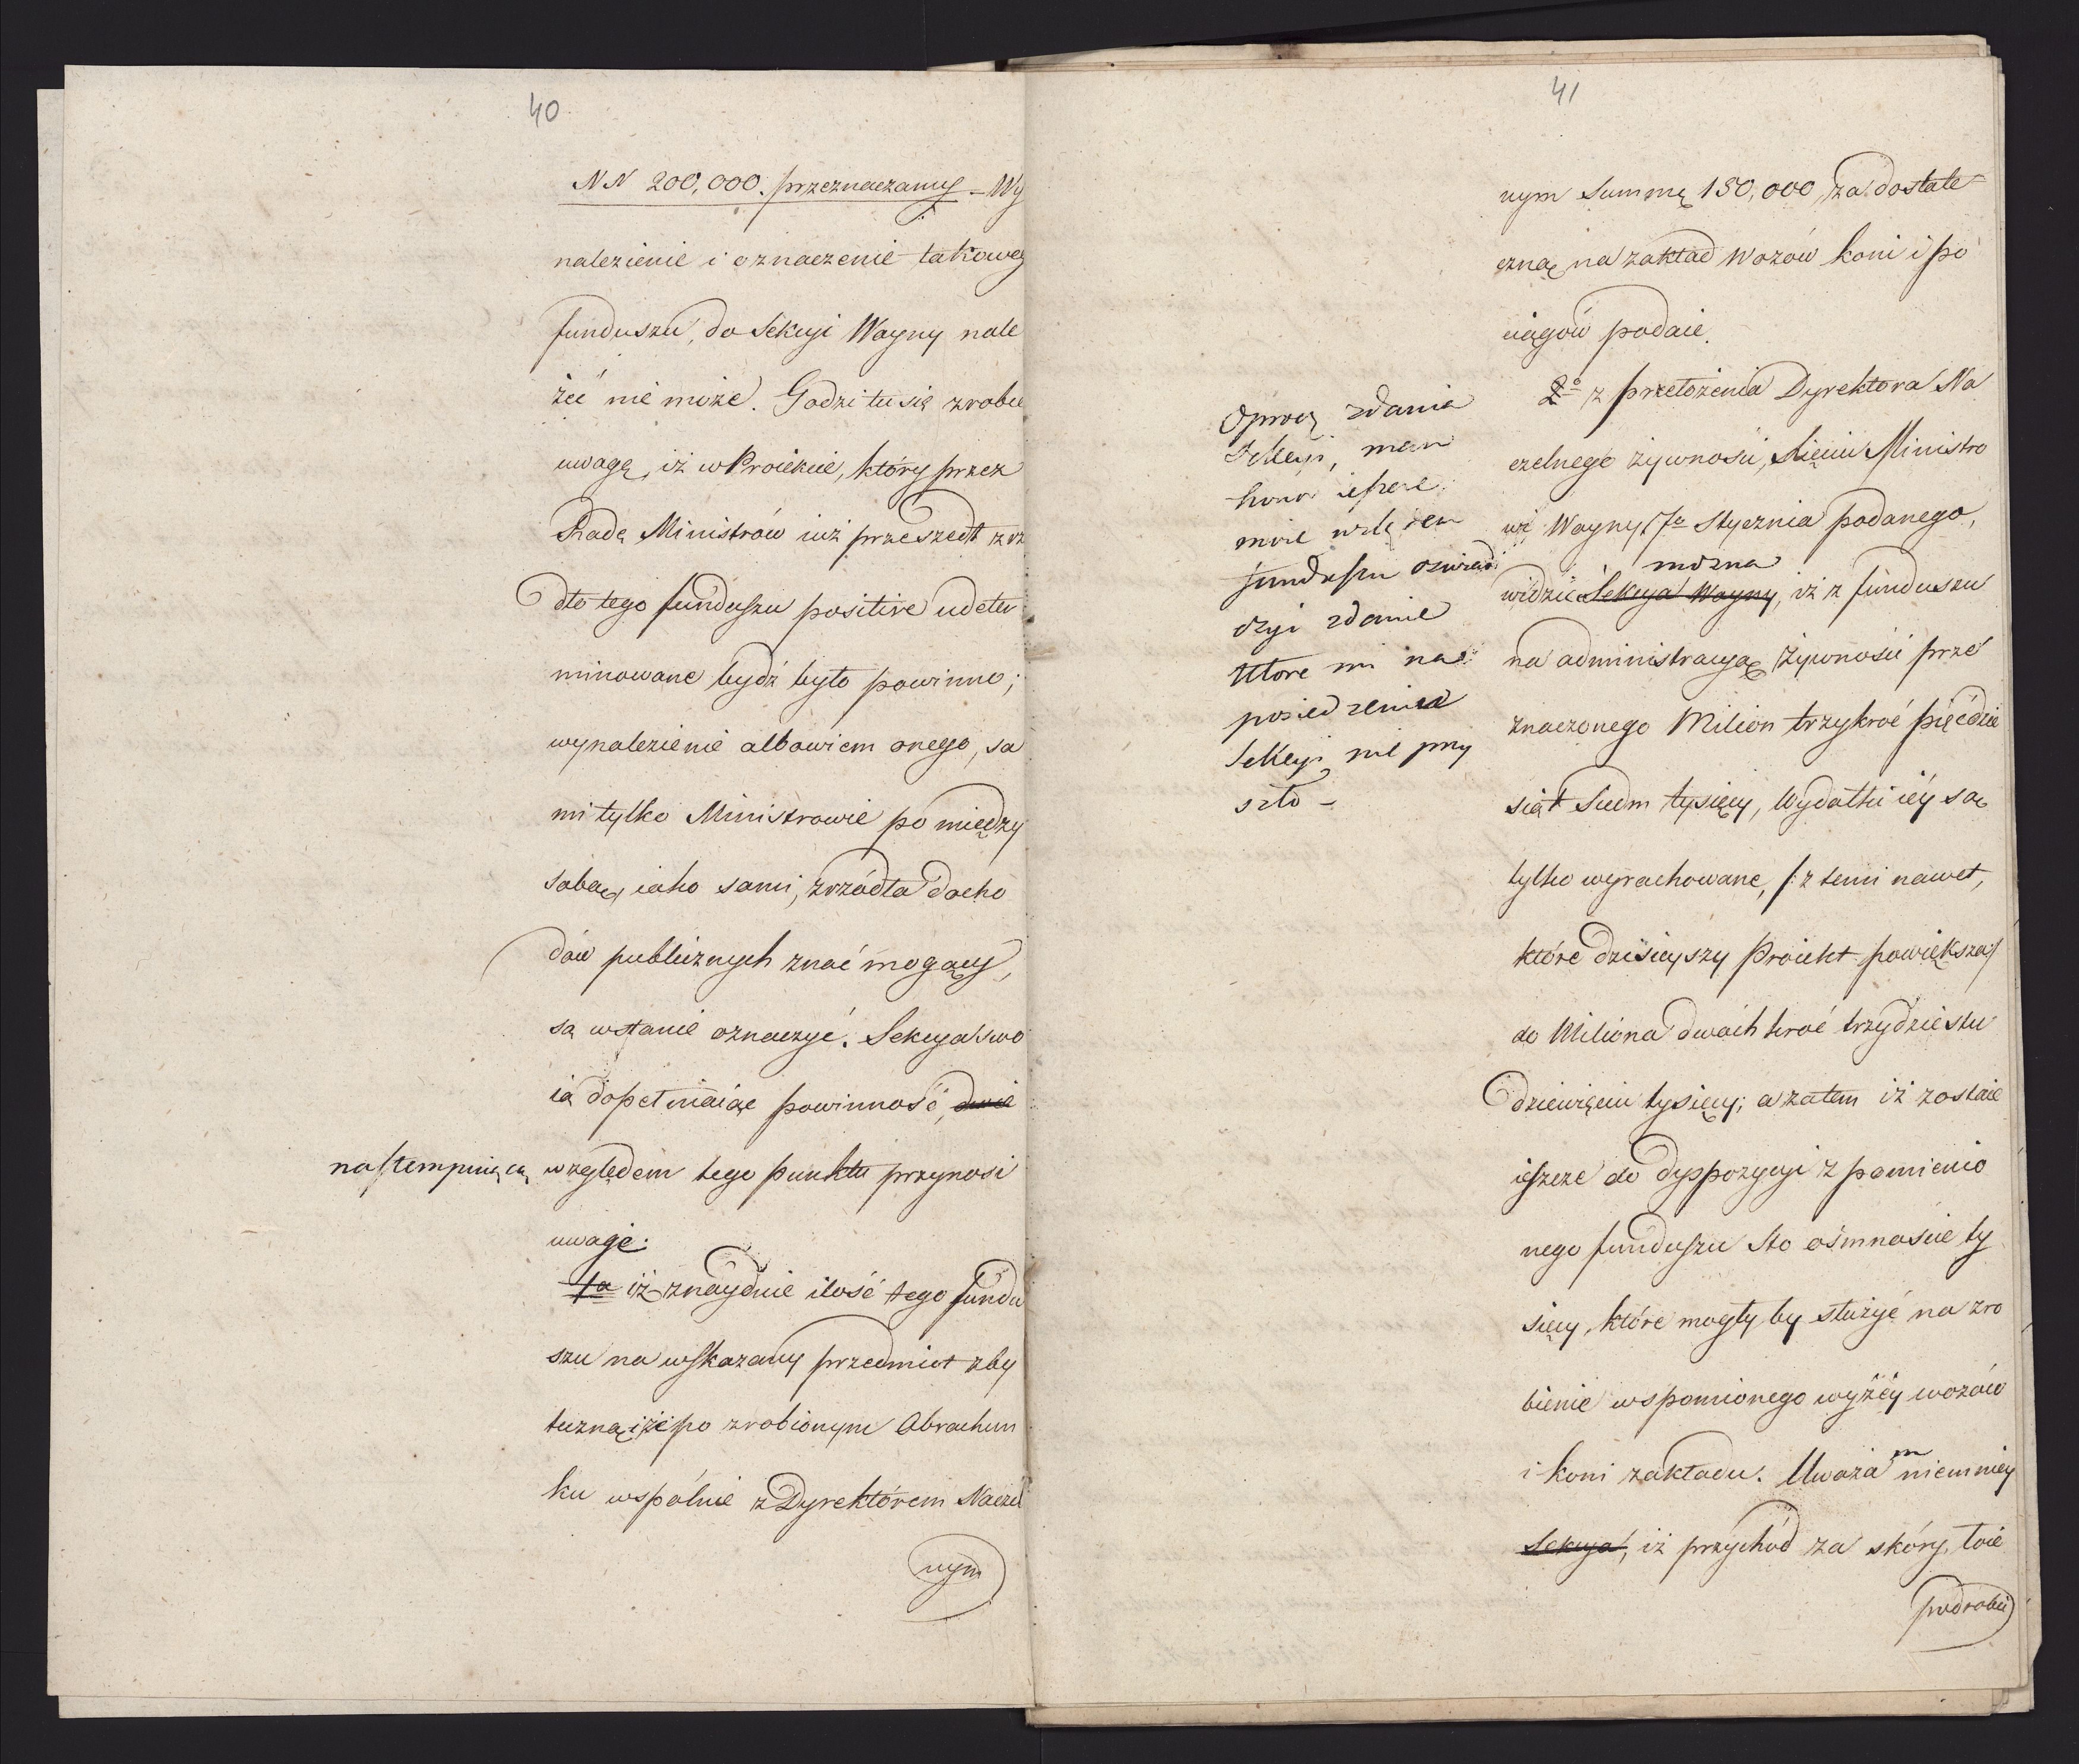 40
NN 200,000. przeznaczamy – Wy
nalezienie i oznaczenie takoweg
funduszu, do Sekcyi Woyny nale
żeć nie może. Godzi tu się zrobić
uwagę, iż w Proiekcie, który przez
Radę Ministrów iuż przeszedł zrz
dło tego funduszu positive udeter
minowane bydź było powinno;
wynalezienie albowiem onego, sa
mi tylko Ministrowie po między
sobą, iako sami, zrzódła docho
dów publicznych znać mogący,
są w stanie oznaczyć. Sekcya swo
ią dopełniaiąc powinność, dwie
nastempuiącą względem tego punktu przynosi
uwagę:
1a iż znayduie ilość tego fundu
szu na wskazany przedmiot zby
teczną, iże po zrobionym Obrachun
ku wspólnie z Dyrektórem Naczel
nym
41
nym Summę 150,000, za dostate
czną na zakład wozów koni i po
ciągów podaie.
2o z przełożenia Dyrektora Na
czelnego żywności, Xięciu Ministro
wi Woyny 17a Stycznia podanego,
można
widzieć Sekcya Woyny, iż z funduszu
na administracyą żywności prze
znaczonego Milion trzykroć pięćdzie
siąt Siedm tysięcy, Wydatki iéy są
tylko wyrachowane, /: z temi nawet,
które dzisieyszy Proiekt powiększa :/
do Miliona dwóch kroć trzydziestu
dziewięciu tysięcy; a zatem iż zostaie
ieszcze do dyspozycyi z pomienio
nego funduszu Sto ośmnaście ty
sięcy, które mogły by służyć na zro
bienie wspomionego wyżéy wozów
i koni zakładu. Uważam niemniey
Sekcya, iż przychód za skóry, łoie
podrobu
Oprocz zdania
Sekcyi, mam
honor ieszcze
moie wzlędem
funduszu oswiad
czyć zdanie
które mi na
posiedzeniu
Sekcyi nie przy
szło –